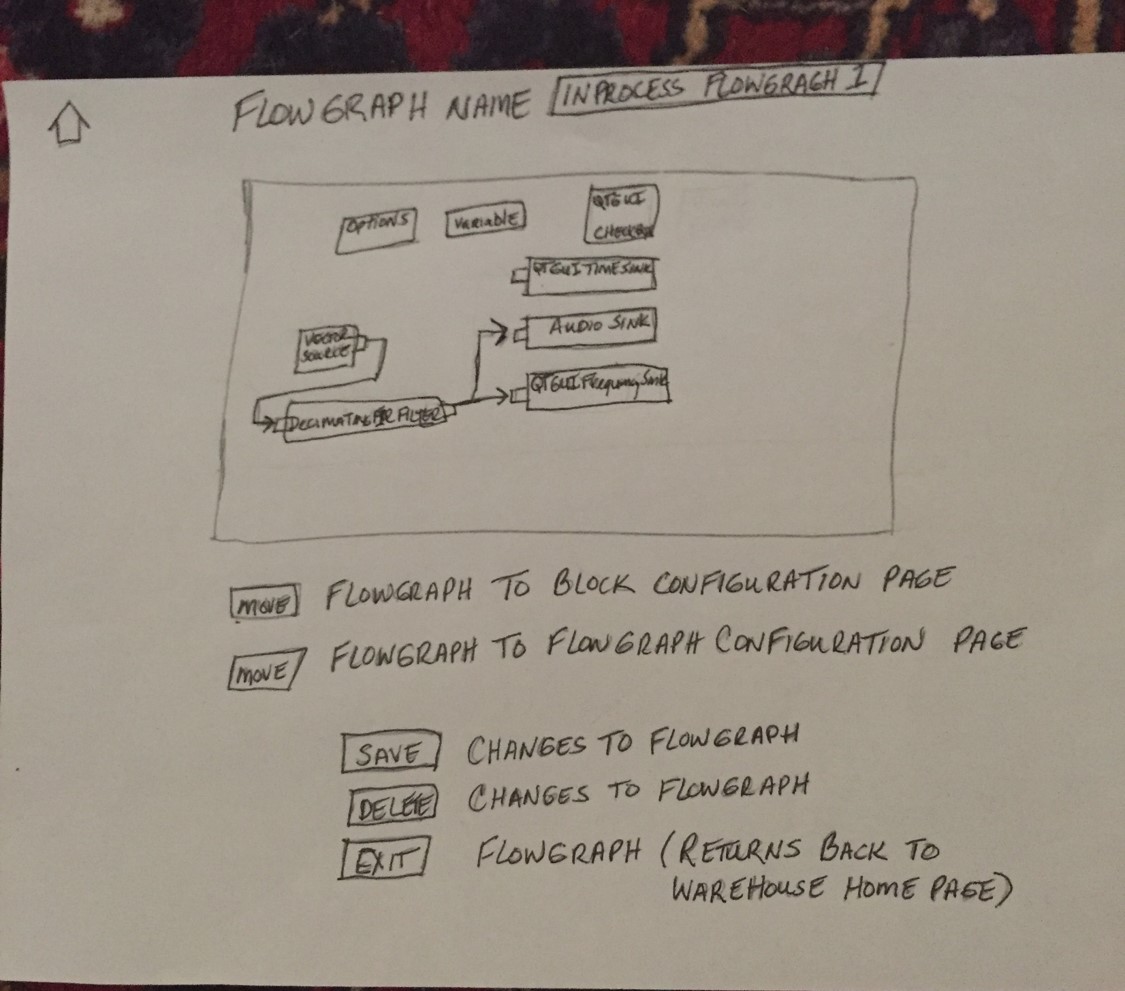 FLOWGRAPH NAME INPROCESS FLOWGRAGH 1
OPTIONS
VARIABLE
QTGUI
CHECKBOX
QTGUI TIME SINK
AUDIO SINK
VECTOR
SOURCE
QTGUI Frequency Sink
DECIMATING FIR FILTER
MOVE FLOWGRAPH TO BLOCK CONFIGURATION PAGE
MOVE FLOWGRAPH TO FLOWGRAPH CONFIGURATION PAGE
SAVE CHANGES TO FLOWGRAPH
DELETE CHANGES TO FLOWGRAPH
EXIT FLOWGRAPH (RETURNS BACK TO
WAREHOUSE HOME PAGE)